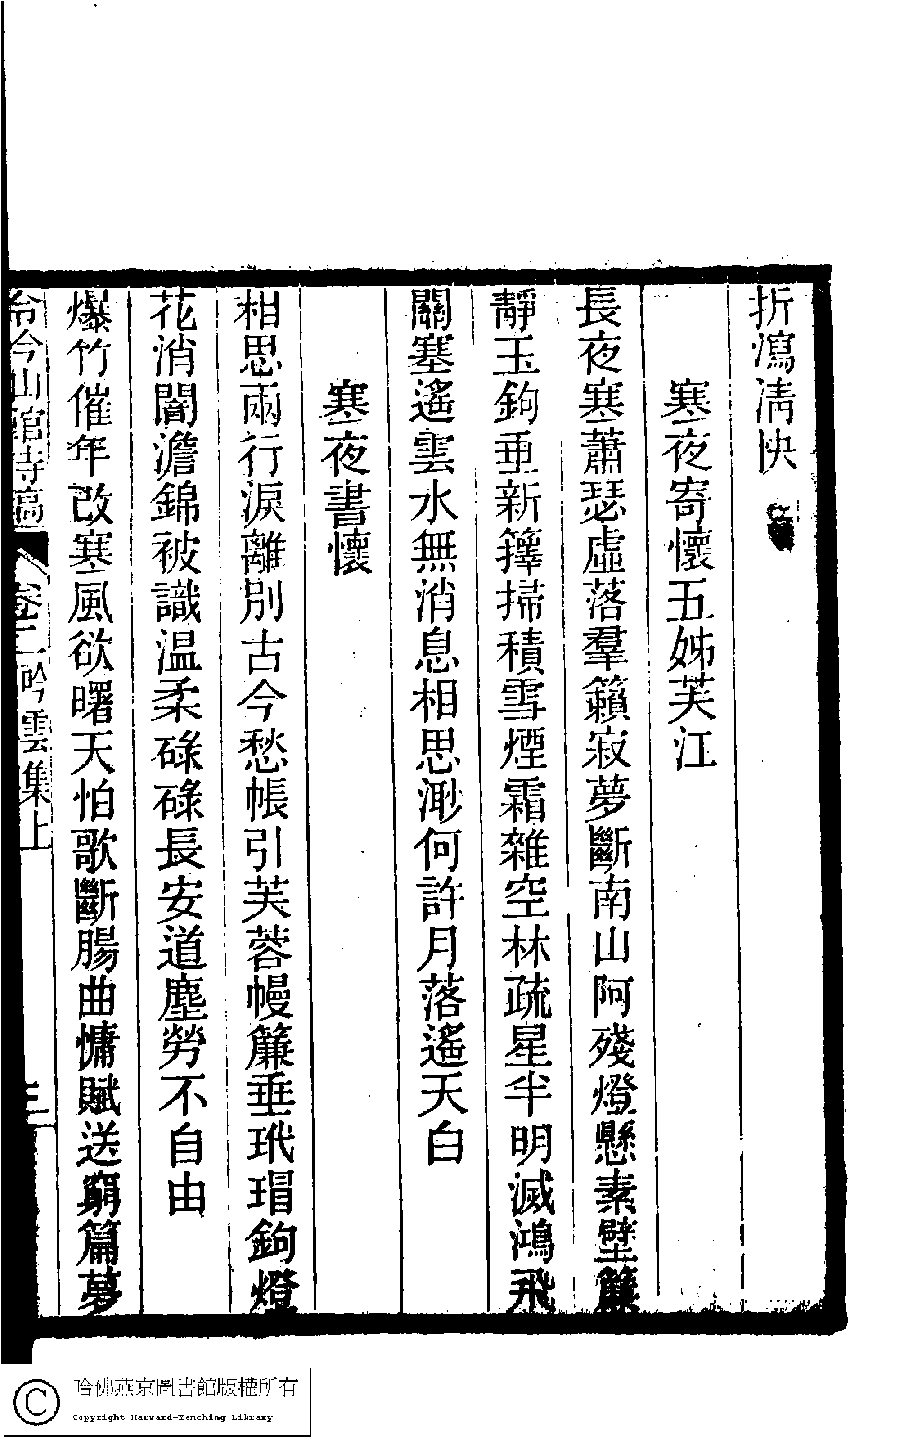 折瀉清快
寒夜寄懷五姊芙江
長夜寒蕭瑟虛落羣籟寂夢斷南山阿殘燈懸素壁簾
靜玉鉤垂新籜掃積雪煙霜雜空林疏星半明滅鴻飛
關塞遙雲水無消息相思渺何許月落遙天白
寒夜書懷
相思兩行淚離別古今愁帳引芙蓉幔簾垂玳瑁鉤燈
花消闇澹錦被識温柔碌碌長安道塵勞不自由
爆竹催年改寒風欲曙天怕歌斷腸曲慵賦送窮篇夢
泠今山館詩稿 卷二吟雲集上 三
哈佛燕京圖書館版權所有
Copyright Harvard-Yenching Library